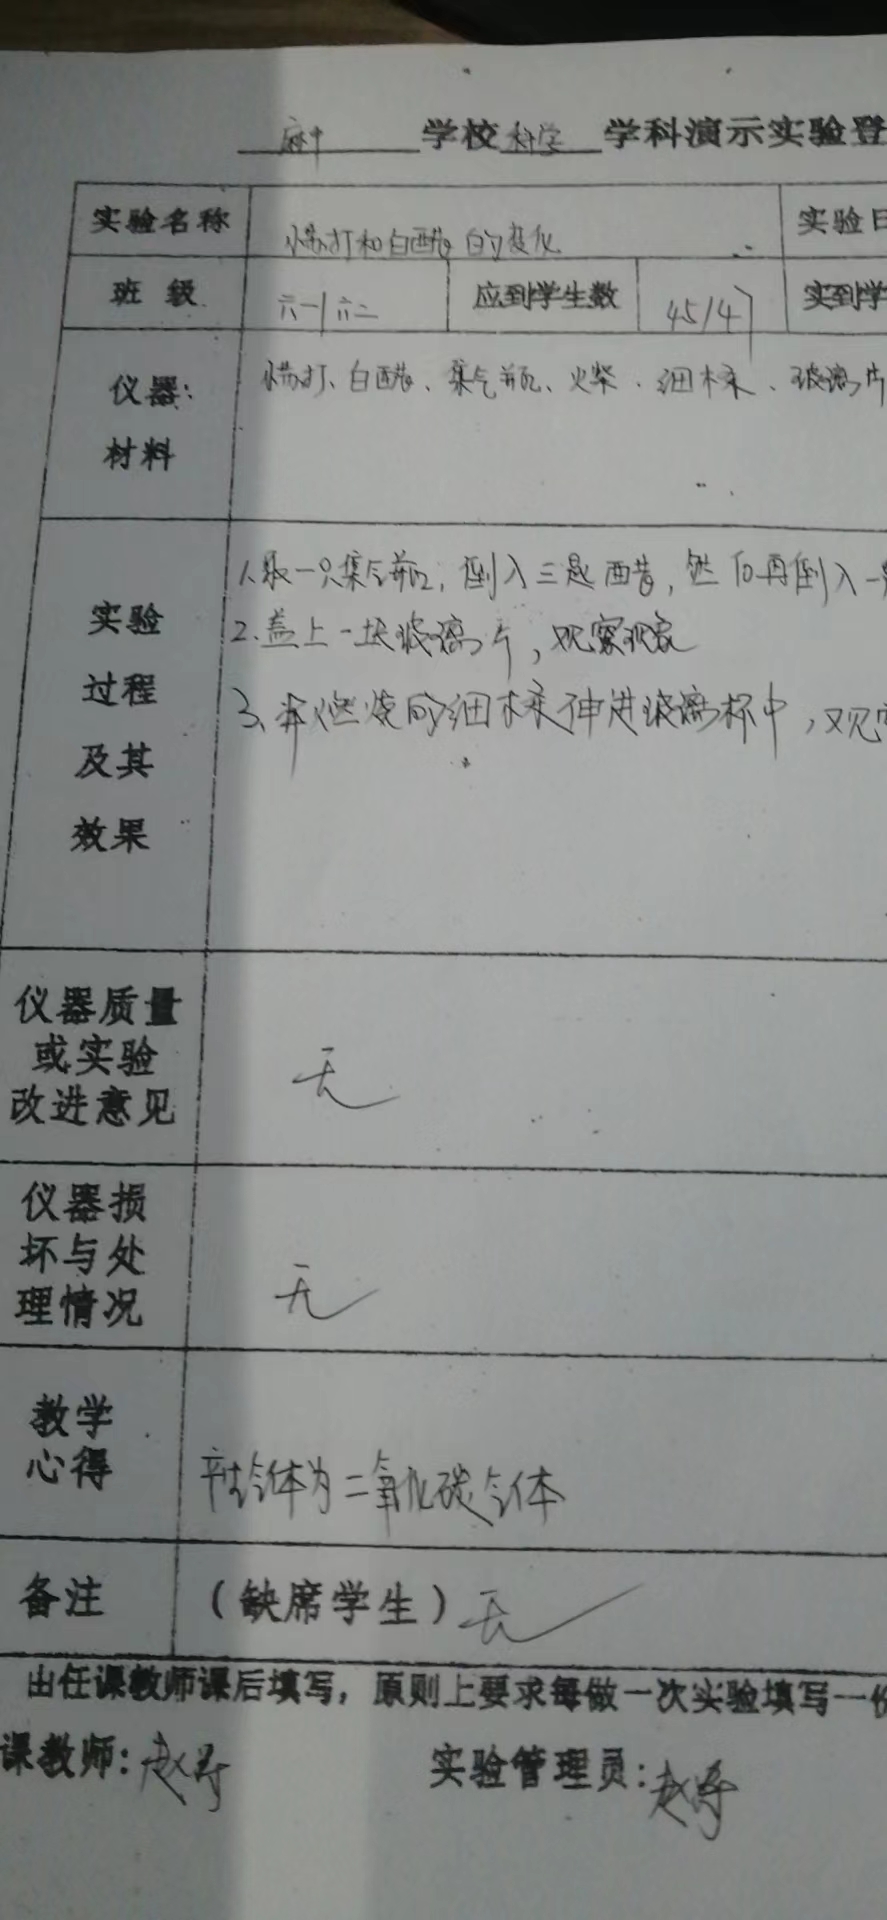 学校 科学 学科演示实验登
实验名称 小苏打和白醋的变化 实验日
班级 六一/六二 应到学生数 45/47 实到学
仪器: 小苏打、白醋、集气瓶、火柴、细木条、玻璃片
材料
1.取一只集气瓶,倒入三匙醋,然后再倒入一
实验 2.盖上一块玻璃片,观察现象
过程 3.将燃烧的细木条伸进玻璃杯中,观
及其
效果
仪器质量
或实验 无
改进意见
仪器损
坏与处 无
理情况
教学
心得 产生气体为二氧化碳气体
备注 (缺席学生)无
由任课教师课后填写,原则上要求每做一次实验填写一份
课教师:赵 实验管理员:赵